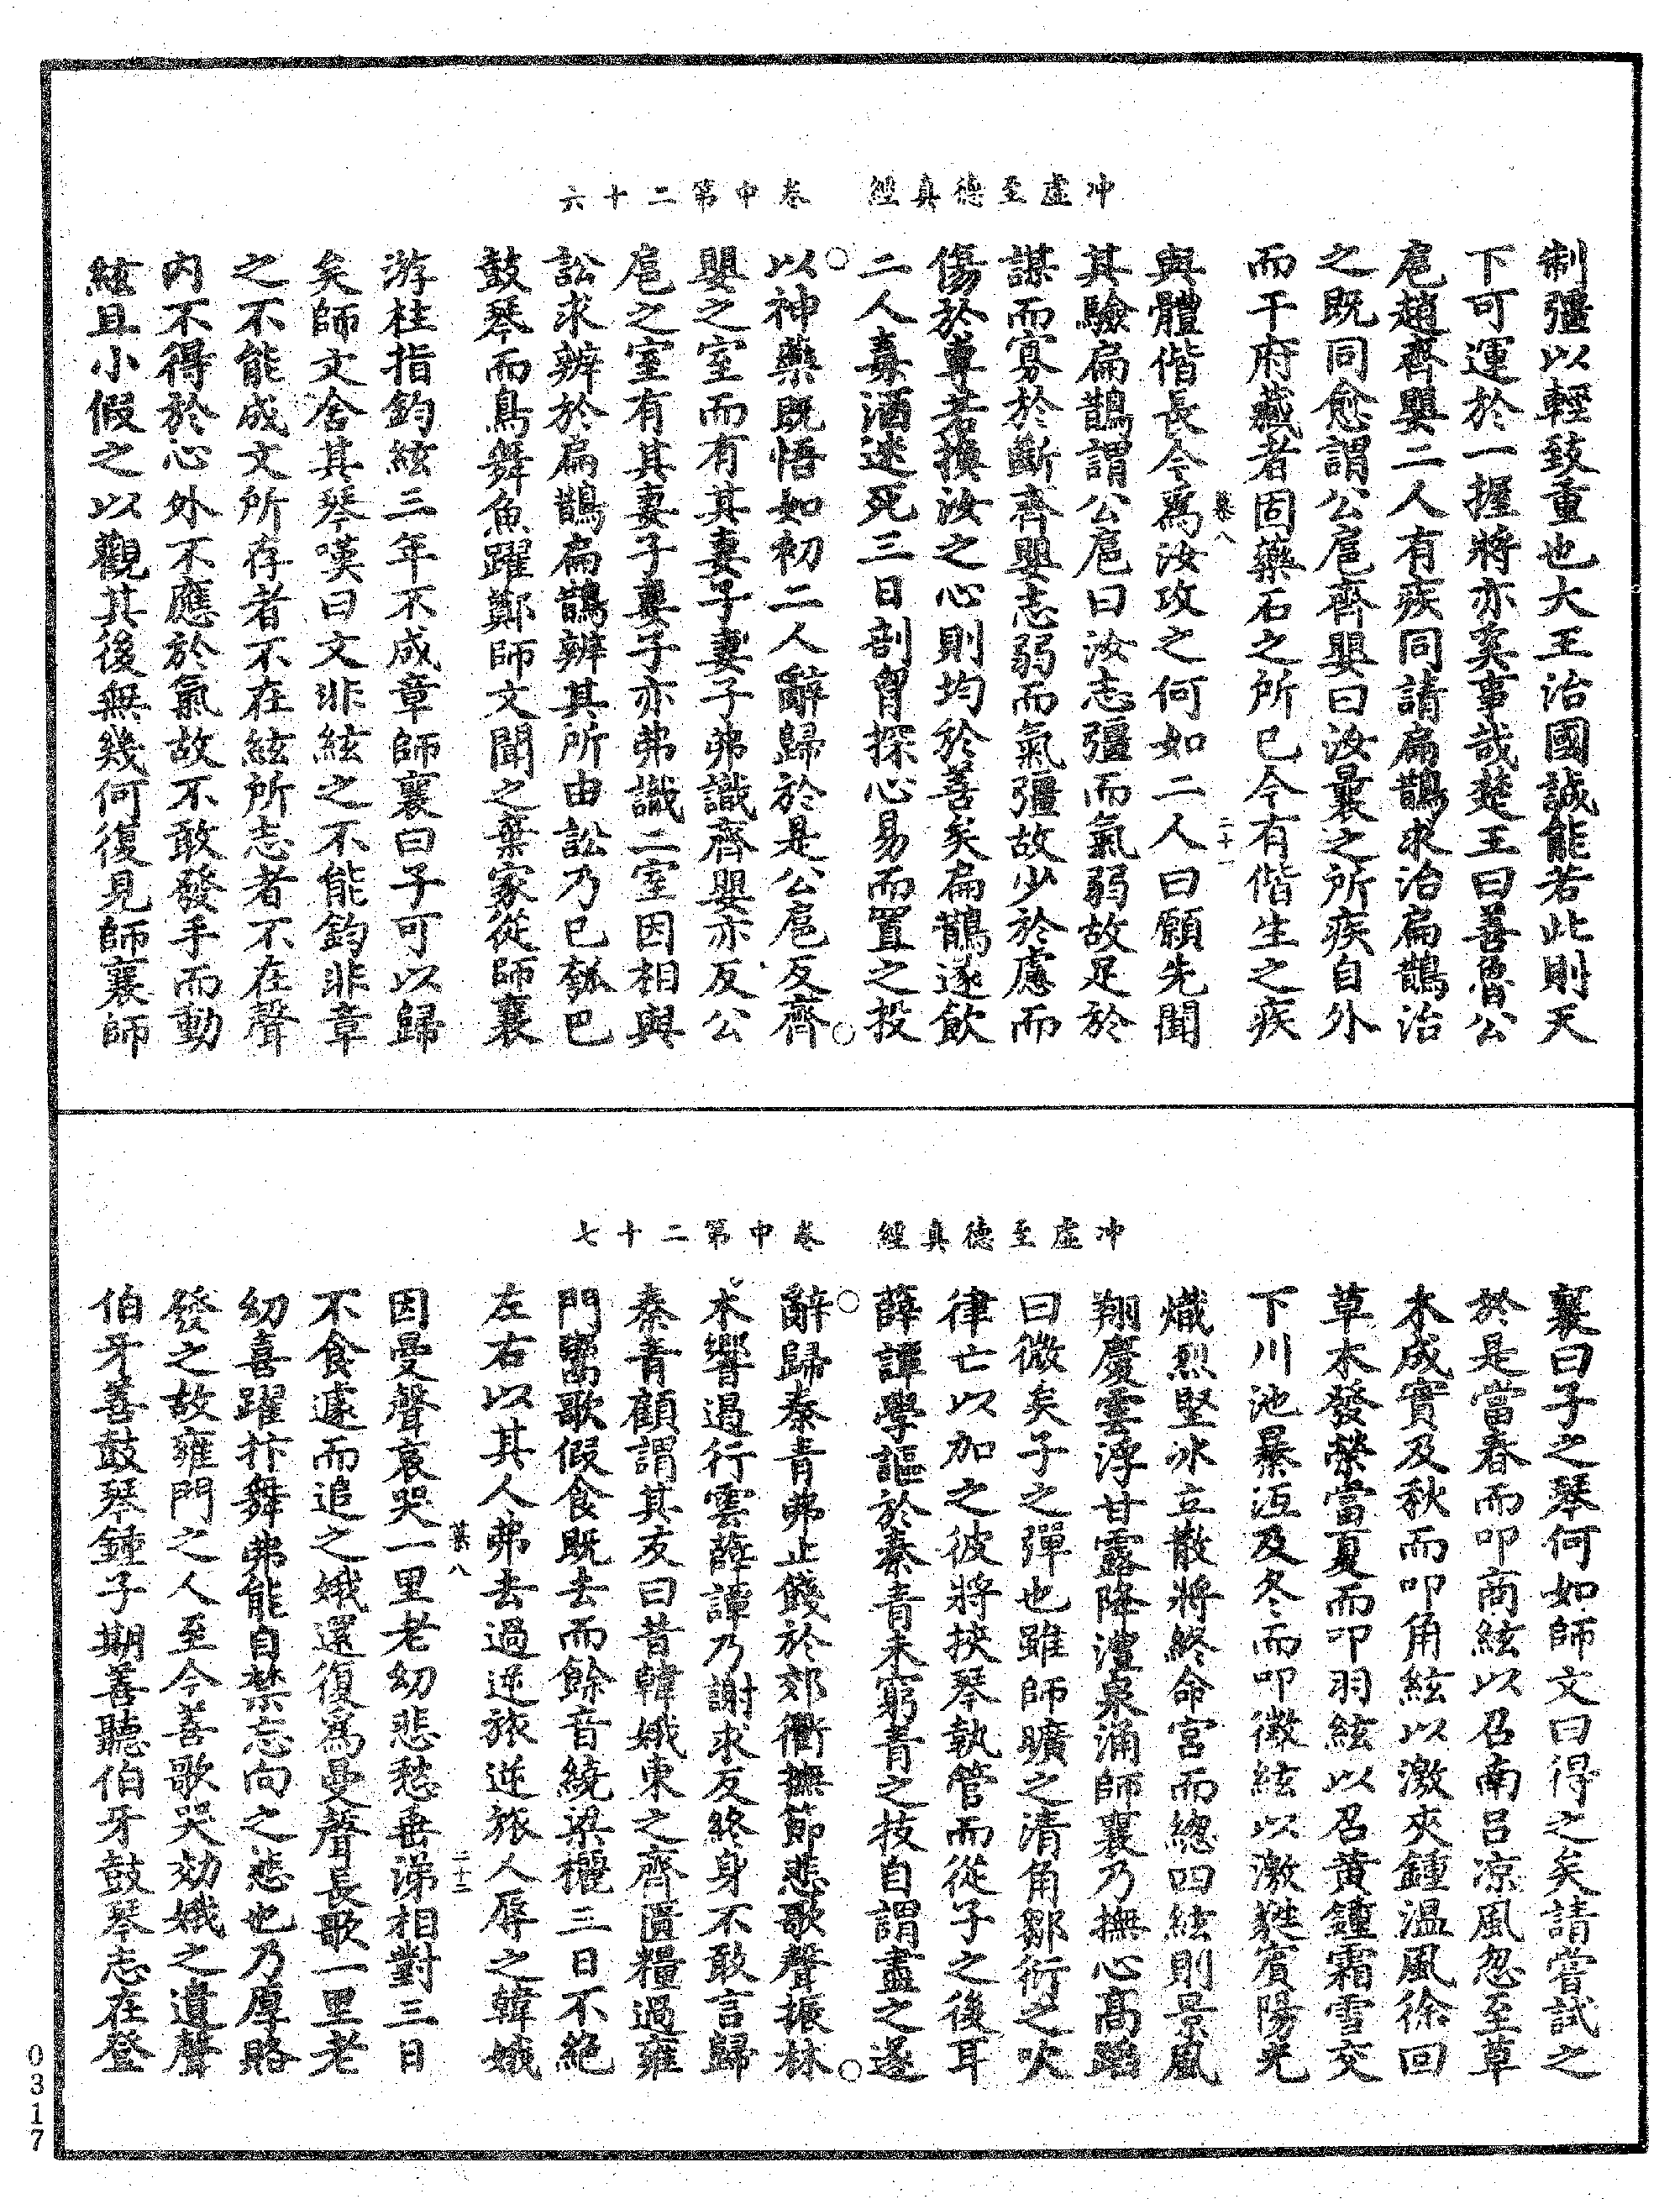 冲虛至德真經　卷中第二十六
制彊以輕致重也大王治國誠能若此則天
下可運於一握將亦奚事哉楚王曰善魯公
扈趙齊嬰二人有疾同請扁鵲求治扁鵲治
之既同愈謂公扈齊嬰曰汝曩之所疾自外
而干府藏者固藥石之所已今有偕生之疾
慕八　二十一
與體偕長今爲汝攻之何如二人曰願先聞
其驗扁鵲謂公扈曰汝志彊而氣弱故足於
謀而寡於斷齊嬰志弱而氣彊故少於慮而
傷於專若換汝之心則均於善矣扁鵲遂飲
二人毒酒迷死三日剖胷探心易而置之投
以神藥既悟如初二人辭歸於是公扈反齊
嬰之室而有其妻子妻子弗識齊嬰亦反公
扈之室有其妻子妻子亦弗識二室因相與
訟求辨於扁鵲扁鵲辨其所由訟乃已瓠巴
鼓琴而鳥舞魚躍鄭師文聞之棄家從師襄
游柱指鈞絃三年不成章師襄曰子可以歸
矣師文舍其琴嘆曰文非絃之不能鈞非章
之不能成文所存者不在絃所志者不在聲
內不得於心外不應於氣故不敢發手而動
絃且小假之以觀其後無幾何復見師襄師
冲虛至德真經　卷中第二十七
襄曰子之琴何如師文曰得之矣請嘗試之
於是當春而叩商絃以召南呂凉風忽至草
木成實及秋而叩角絃以激夾鍾溫風徐回
草木發榮當夏而叩羽絃以召黃鍾霜雪交
下川池暴沍及冬而叩徵絃以激蕤賓陽光
熾烈堅冰立散將終命宮而總四絃則景風
翔慶雲浮甘露降澧泉涌師襄乃撫心高蹈
曰微矣子之彈也雖師曠之清角鄒衍之吹
律亡以加之彼將挾琴執管而從子之後耳
薛譚學謳於秦青未窮青之技自謂盡之遂
辭歸秦青弗止餞於郊衢撫節悲歌聲振林
木響遏行雲薛譚乃謝求反終身不敢言歸
秦青顧謂其友曰昔韓娥東之齊匱糧過雍
門鬻歌假食既去而餘音繞梁欐三日不絕
左右以其人弗去過逆旅逆旅人辱之韓娥
慕八　二十二
因曼聲哀哭一里老幼悲愁垂涕相對三日
不食遽而追之娥還復爲曼聲長歌一里老
幼喜躍抃舞弗能自禁忘向之悲也乃厚賂
發之故雍門之人至今善歌哭効娥之遺聲
伯牙善鼓琴鍾子期善聽伯牙鼓琴志在登
0317